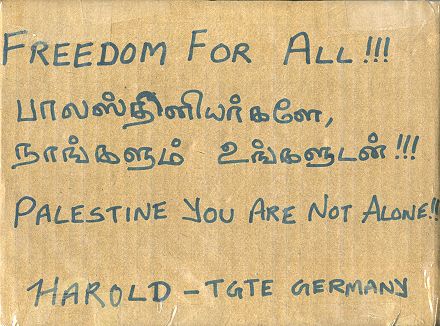 FREEDOM FOR ALL!!!
பாலஸ்தீனியர்களே,
நாங்களும் உங்களுடன்!!!
PALESTINE YOU ARE NOT ALONE!!
HAROLD - TGTE GERMANY